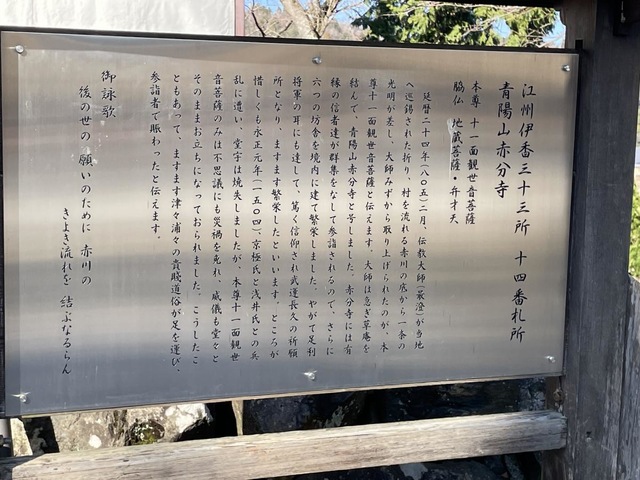 江州伊香三十三所 十四番札所
青陽山赤分寺
本尊 十一面観世音菩薩
脇仏 地蔵菩薩・弁才天
延暦二十四年(八〇五)二月、伝教大師(最澄)が当地
へ巡錫された折り、村を流れる赤川の底から一条の
光明が差し、大師みずから取り上げられたのが、本
尊十一面観世音菩薩と伝えます。大師は急ぎ草庵を
結んで、青陽山赤分寺と号しました。赤分寺には有
縁の信者達が群集をなして参詣されるので、さらに
六つの坊舎を境内に建て繁栄しました。やがて足利
将軍の耳にも達して、篤く信仰され武運長久の祈願
所となり、ますます繁栄したといいます。ところが
惜しくも永正元年(一五〇四)、京極氏と浅井氏との兵
乱に遭い、堂宇は焼失しましたが、本尊十一面観世
音菩薩のみは不思議にも災禍を免れ、威儀も堂々と
そのままお立ちになっておられました。こうしたこ
ともあって、ますます津々浦々の貴賤道俗が足を運び、
参詣者で賑わったと伝えます。
御詠歌
後の世の 願いのために 赤川の
きよき流れを 結ぶなるらん